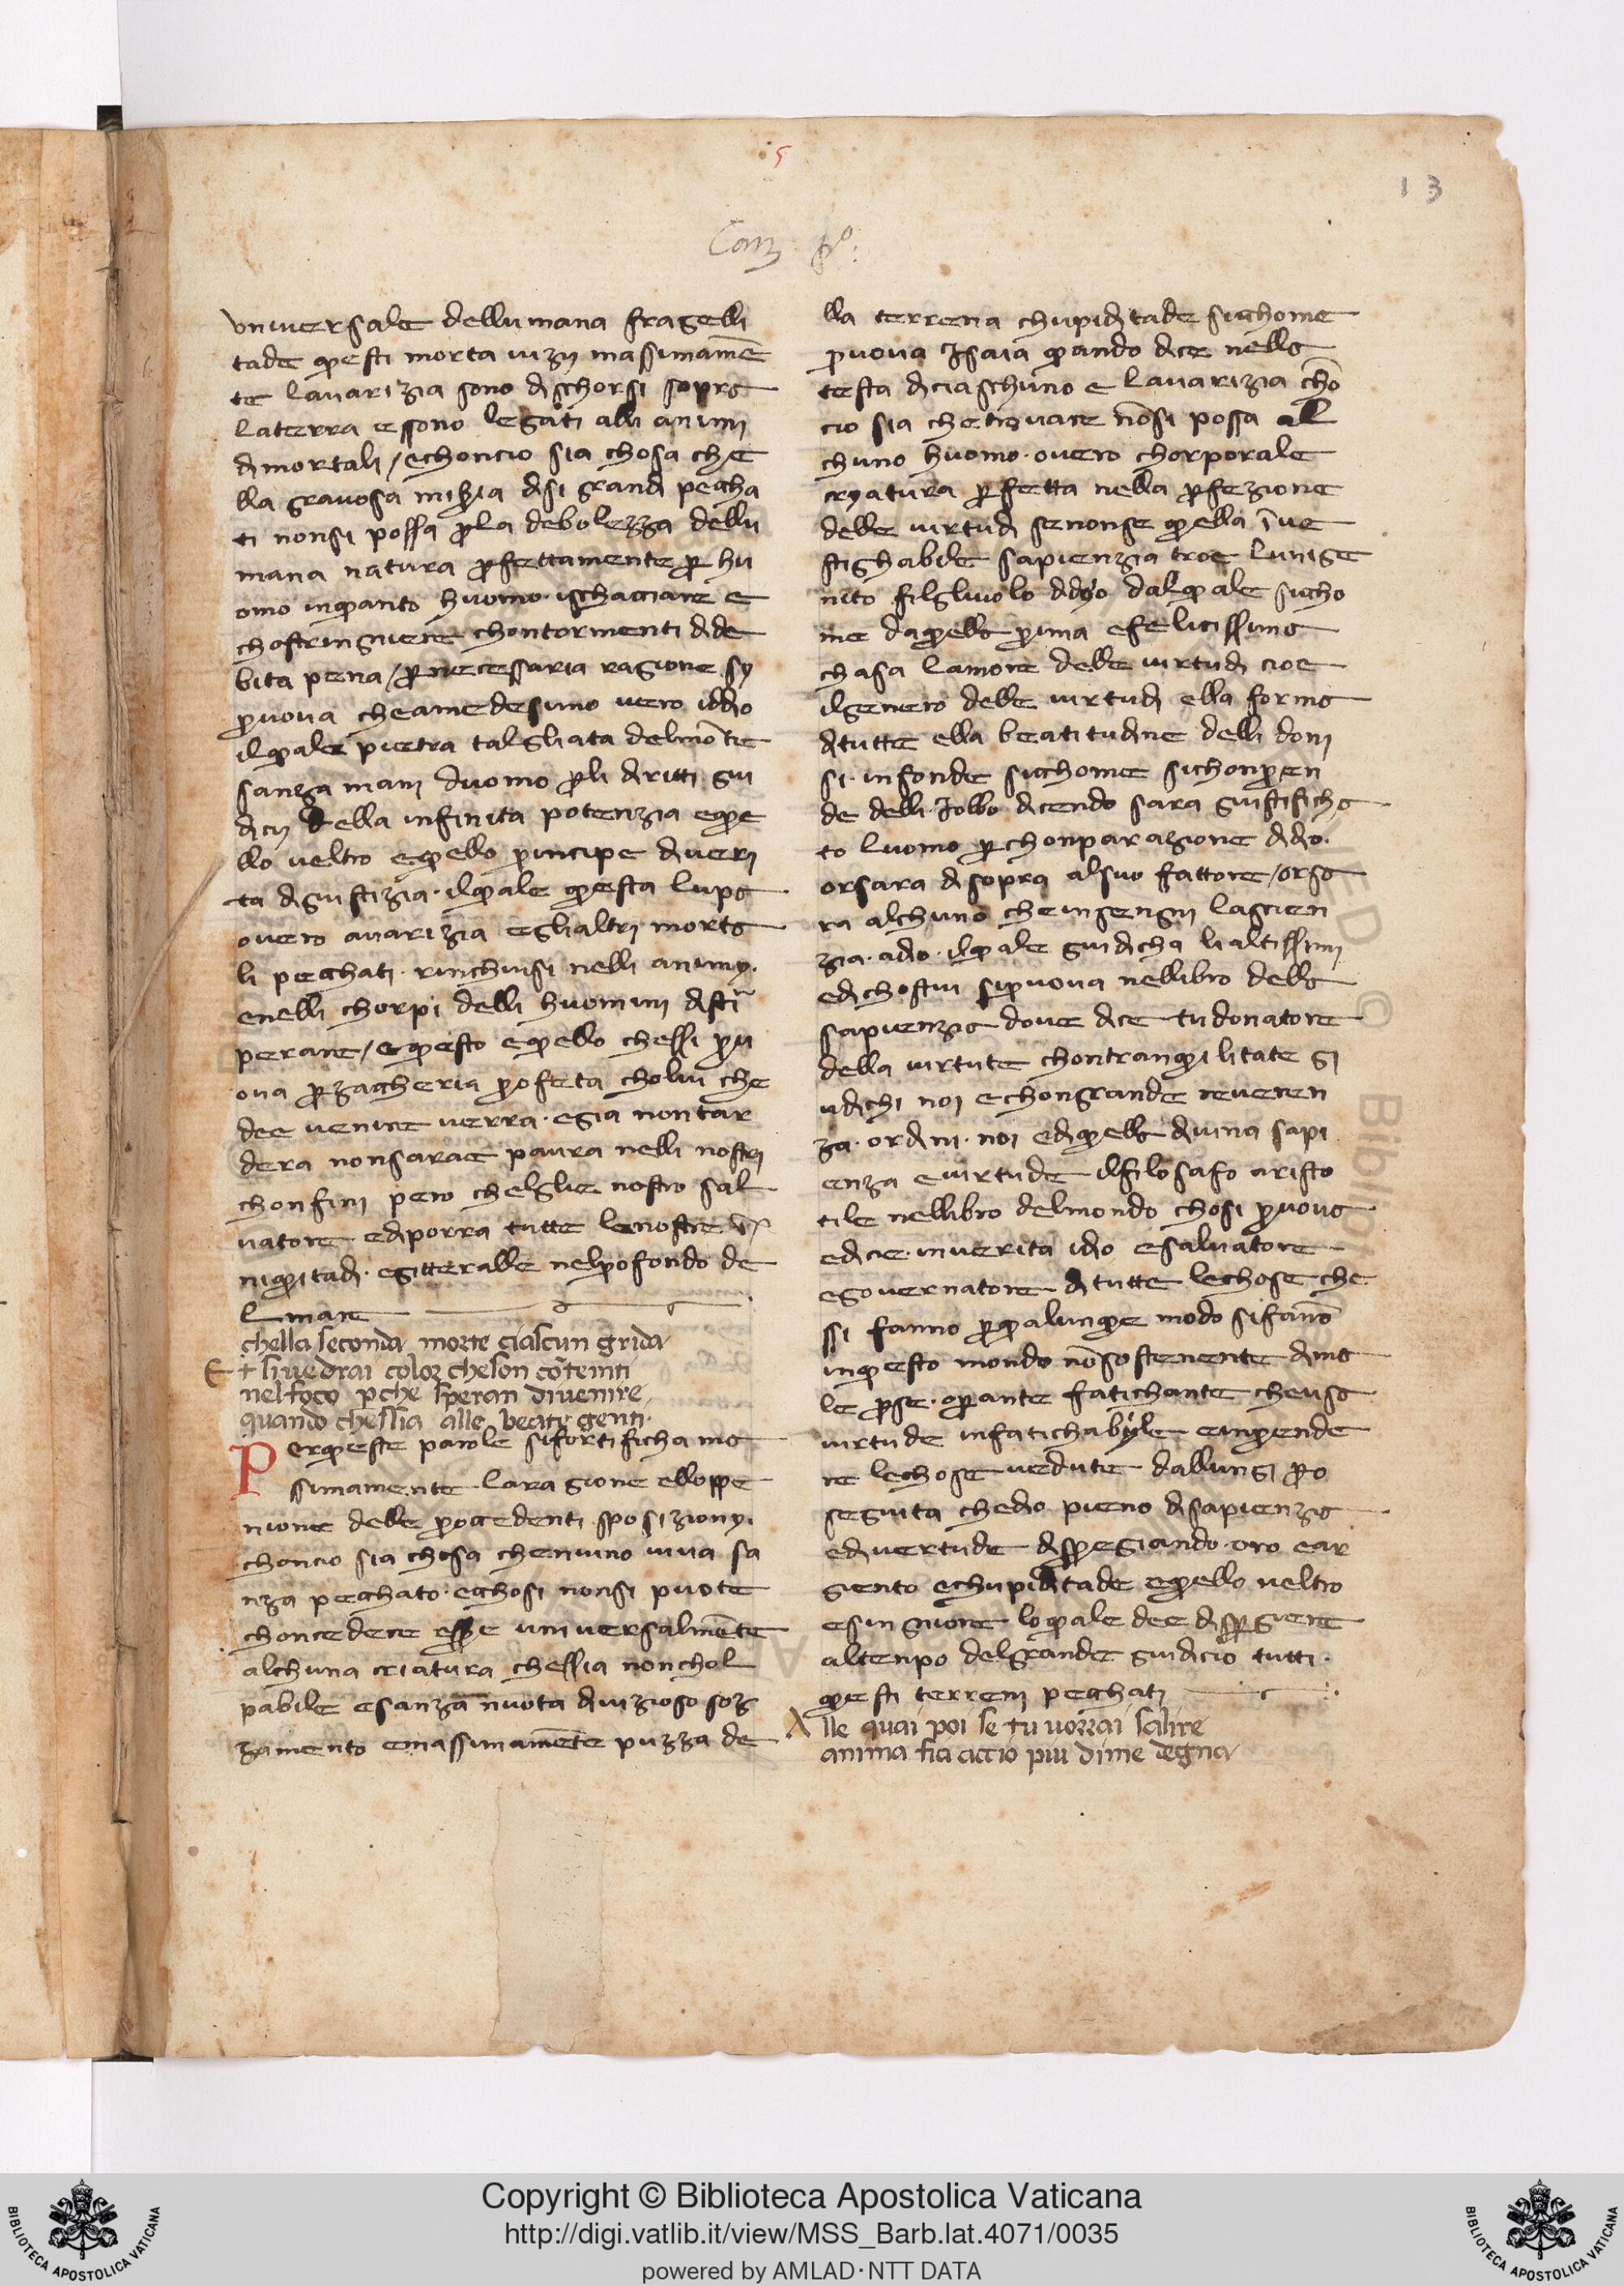 5
13
Canz pº:
vniuersale dellumana fragelli
tade questi morta uizij massimamē
te lauarizia sono dischorsi sopra
laterra essono legati alli animi
dimortali / echoncio sia chosa che
lla grauosa mizia disi grandi peccha
ti nonsi possa p̱la debolezza dellu
mana natura p̱fettamente p̱ hu
omo inquanto huomo · ischacciare e
chostringniere chontormenti dide
bita pena / p̱ necessaria ragione sy
pruova cheamedesimo uero iddio
ilquale pietra talgliata delmōte
sanza mani duomo p̱li diritti giu
dicij della infinita potenzia eque
llo ueltro equello principe diueri
ta digiustizia · ilquale questa lupa
ouero auarizia eglialtri morta
li pecchati · rinchiusi nelli animy ·
enelli chorpi delli huomini disti
perare / equesto equello chessi pru
oua p̱zaccheria profeta cholui che
dee uenire uerra · egia nontar
dera nonsarae paura nelli nostri
chonfini pero chelglie nostro sal
uatore ediporra tutte lenostre ī
niquitadi · egitteralle nelprofondo de
lmare
chella seconda morte ciascun grida
E t uedrai color cheson cōtenti
nelfoco pche speran diuenire
quando chessia alle beate genti ·
P erqueste parole sifortificha ma
ssimamente laragione elloppe
nione delle procedenti sposizionyi
choncio sia chosa cheniuno uiua sa
nza pecchato · echosi nonsi puote
choncedere essere uniuersalmēte
alchuna criatura chessia nonchol
pabile esanza nuota diuizioso soz
zamento emassimamēte puzza de
lla terrena chupiditade sicchome
pruoua Isaia quando dice nella
testa diciaschuno e lauarizia chō
cio sia chetrouare nōsi possa al
chuno huomo · ouero chorporale
cryatura p̱fetta nella p̱fezione
delle uirtudi senonse quella īue
stighabile sapienzia troe lunige
nito filgluolo ddyo dalquale siccho
me daquella prima efelicissima
chasa lamore delle uirtudi cioe
ilgenero delle uirtudi ella forma
ditutte ella beatitudine delli doni
si · infonde sicchome sichonpren
de delli · Iobbo dicendo sara giustificha
to luomo p̱ chonparazione didio ·
orsara disopra alsuo fattore / orsa
ra alchuno cheinsengni lascien
zia · adio · ilquale giudicha lialtissimi
edichostui sipruoua nellibro della
sapienzia doue dice tu donatore
della uirtute chontranquilitate gi
udichi noi echongrande reueren
za · ordini · noi ediquella diuina sapi
enza euirtude ilfilosafo aristo
tile nellibro delmondo chosi pruoua
edice · inuerita idio esaluatore
egouernatore ditutte lechose che
ssi fanno p̱qualunque modo sifanō
inquesto mondo nōsostenente dima
le p̱se · op̱ante fatichante cheusa
uirtude infatichabyle eimprende
re lechose uedute dallungi pro
seguita chedio pieno disapienzia
ediuertude dispregiando · oro ear
giento echupiditade equello ueltro
esingniore loquale dee disp̱giere
altenpo delgrande giudicio tutti ·
questi terreni pecchati
A lle quai poi se tu uorrai salire
anima fia accio piu dime degna